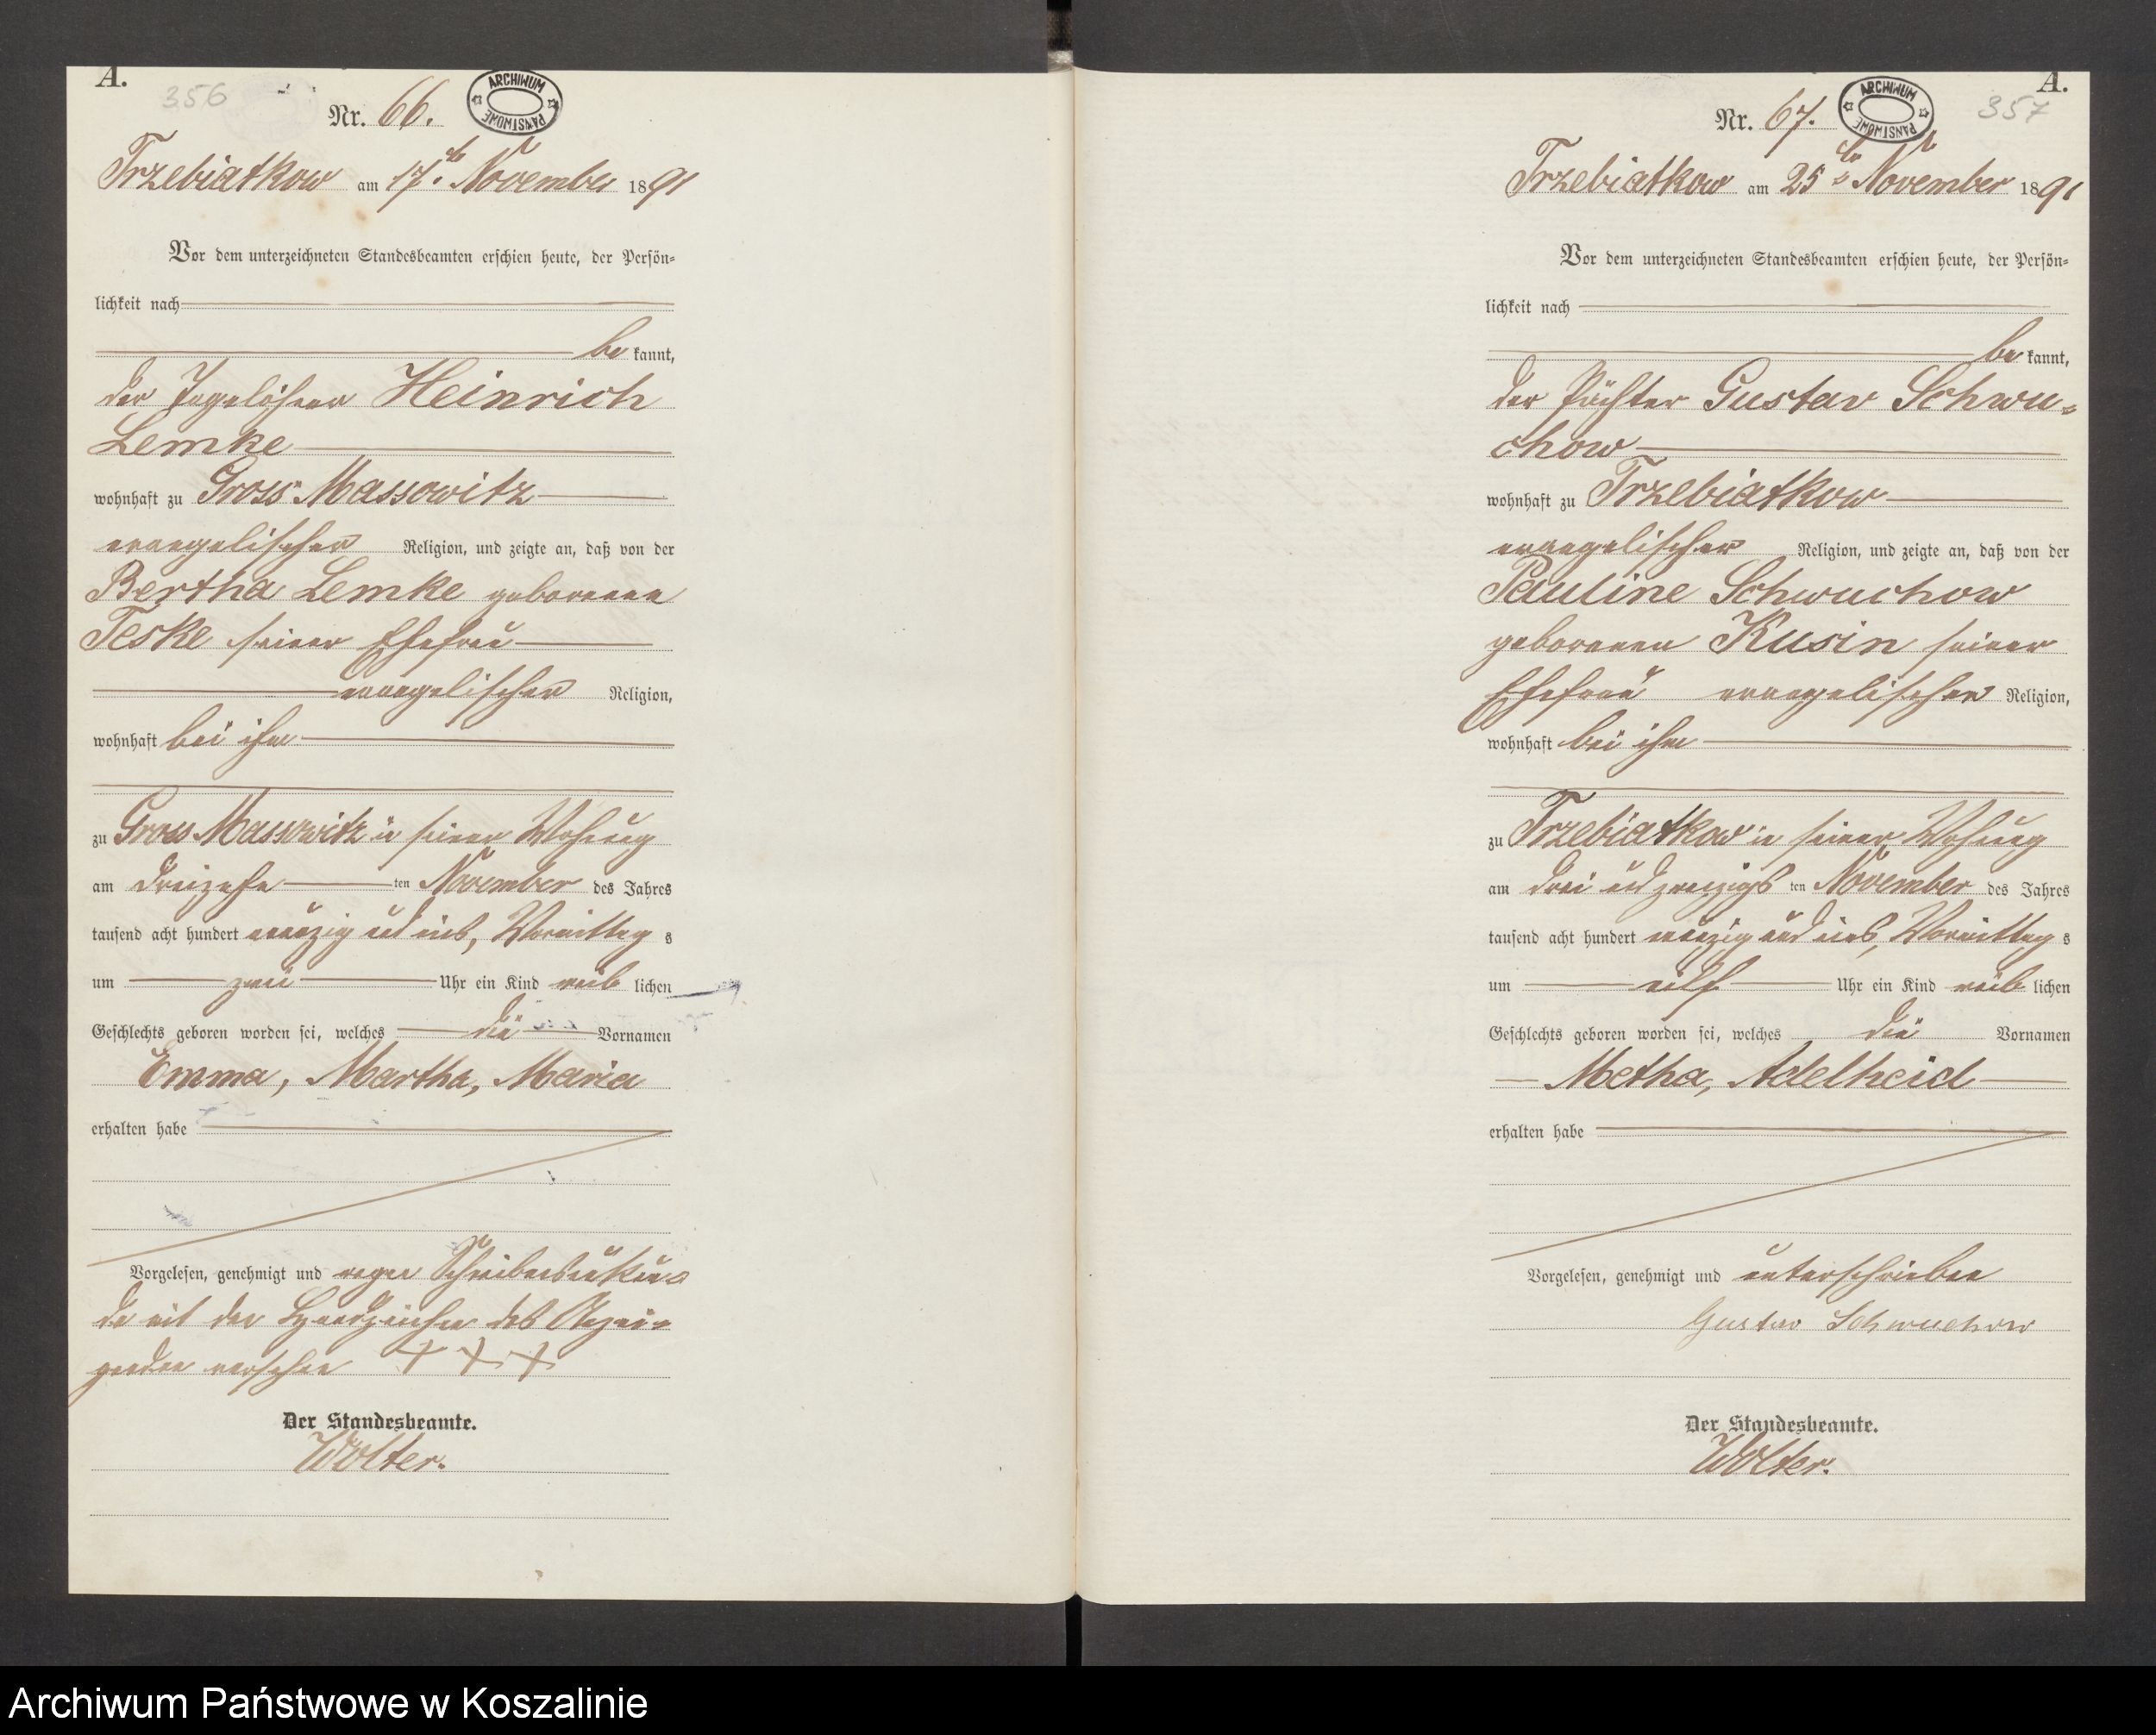 A.
356
Nr. 66.
ARCHIWUM PAŃSTWOWE
Trzebiatkow am 17ten November 1891
Vor dem unterzeichneten Standesbeamten erschien heute, der Persön-
lichkeit nach
be kannt,
der Tagelöhner Heinrich
Lemke
wohnhaft zu Gross Massowitz
evangelischer Religion, und zeigte an, daß von der
Bertha Lemke geborenen
Teske seiner Ehefrau
evangelischer Religion,
wohnhaft bei ihm
zu Gross Massowitz in seiner Wohnung
am dreizehn ten November des Jahres
tausend acht hundert neunzig und eins, Vormittag s
um zwei Uhr ein Kind weib lichen
Geschlechts geboren worden sei, welches die Vornamen
Emma, Martha, Maria
erhalten habe
Vorgelesen, genehmigt und wegen Schreibensunkun-
de mit den Handzeichen des Anzei-
genden versehen + + +
Der Standesbeamte.
Wolter.
A.
357
Nr. 67.
ARCHIWUM PAŃSTWOWE
Trzebiatkow am 25ten November 1891
Vor dem unterzeichneten Standesbeamten erschien heute, der Persön-
lichkeit nach
be kannt,
der Pächter Gustav Schwu-
chow
wohnhaft zu Trzebiatkow
evangelischer Religion, und zeigte an, daß von der
Pauline Schwuchow
geborenen Kusin seiner
Ehefrau evangelischer Religion,
wohnhaft bei ihm
zu Trzebiatkow in seiner Wohnung
am drei und zwanzigs ten November des Jahres
tausend acht hundert neunzig und eins, Vormittag s
um eilf Uhr ein Kind weib lichen
Geschlechts geboren worden sei, welches die Vornamen
Metha, Adelheid
erhalten habe
Vorgelesen, genehmigt und unterschrieben
Gustav Schwuchow
Der Standesbeamte.
Wolter.
Archiwum Państwowe w Koszalinie